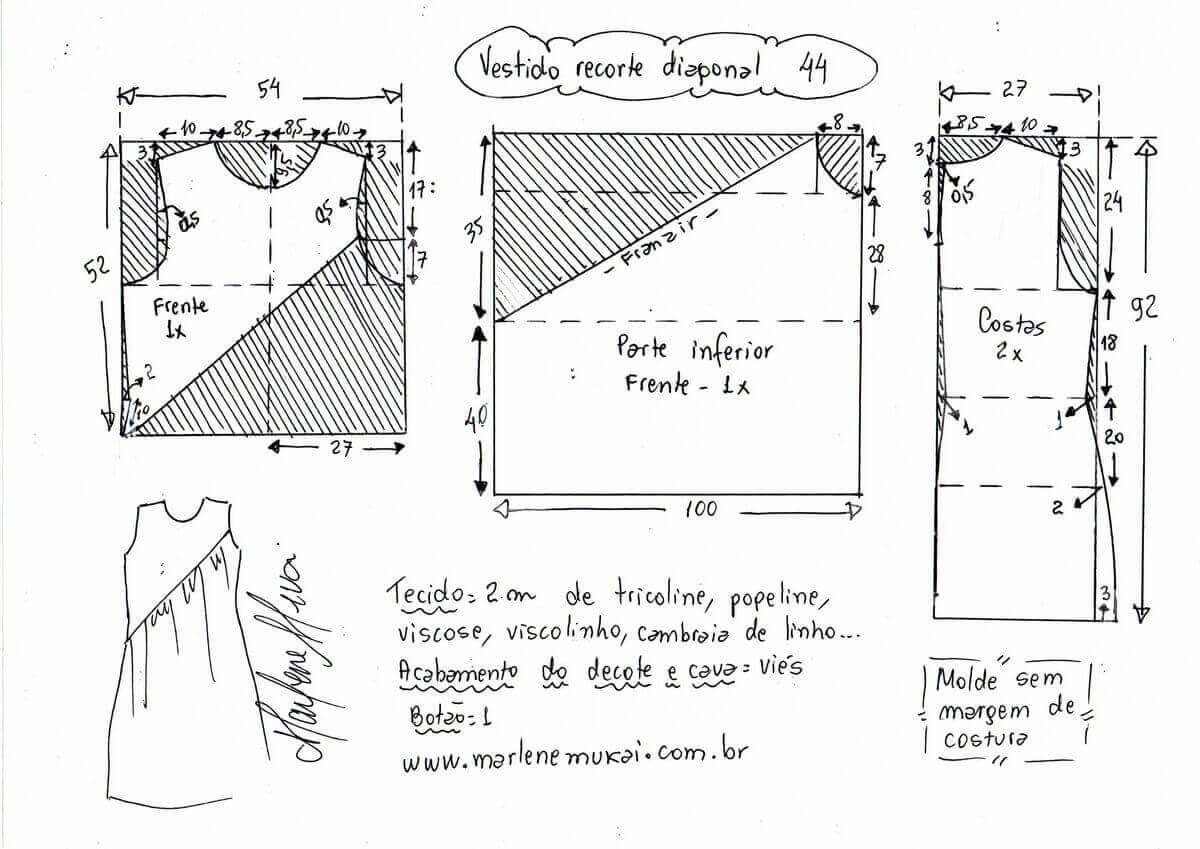 Vestido recorte diagonal 44
54
10 8,5 8,5 10
3
9,5
3
17
0,5
0,5
52
7
Frente
1x
2
10
27
8
7
35
- Franzir -
28
Parte inferior
Frente - 1x
40
100
27
8,5 10
3
3
8
0,5
24
92
Costas
2x
18
1
1
20
2
3
Marlene Mukai
Tecido = 2 m de tricoline, popeline,
viscose, viscolinho, cambraia de linho...
Acabamento do decote e cava = viés
Botão = 1
www.marlenemukai.com.br
Molde sem
margem de
costura